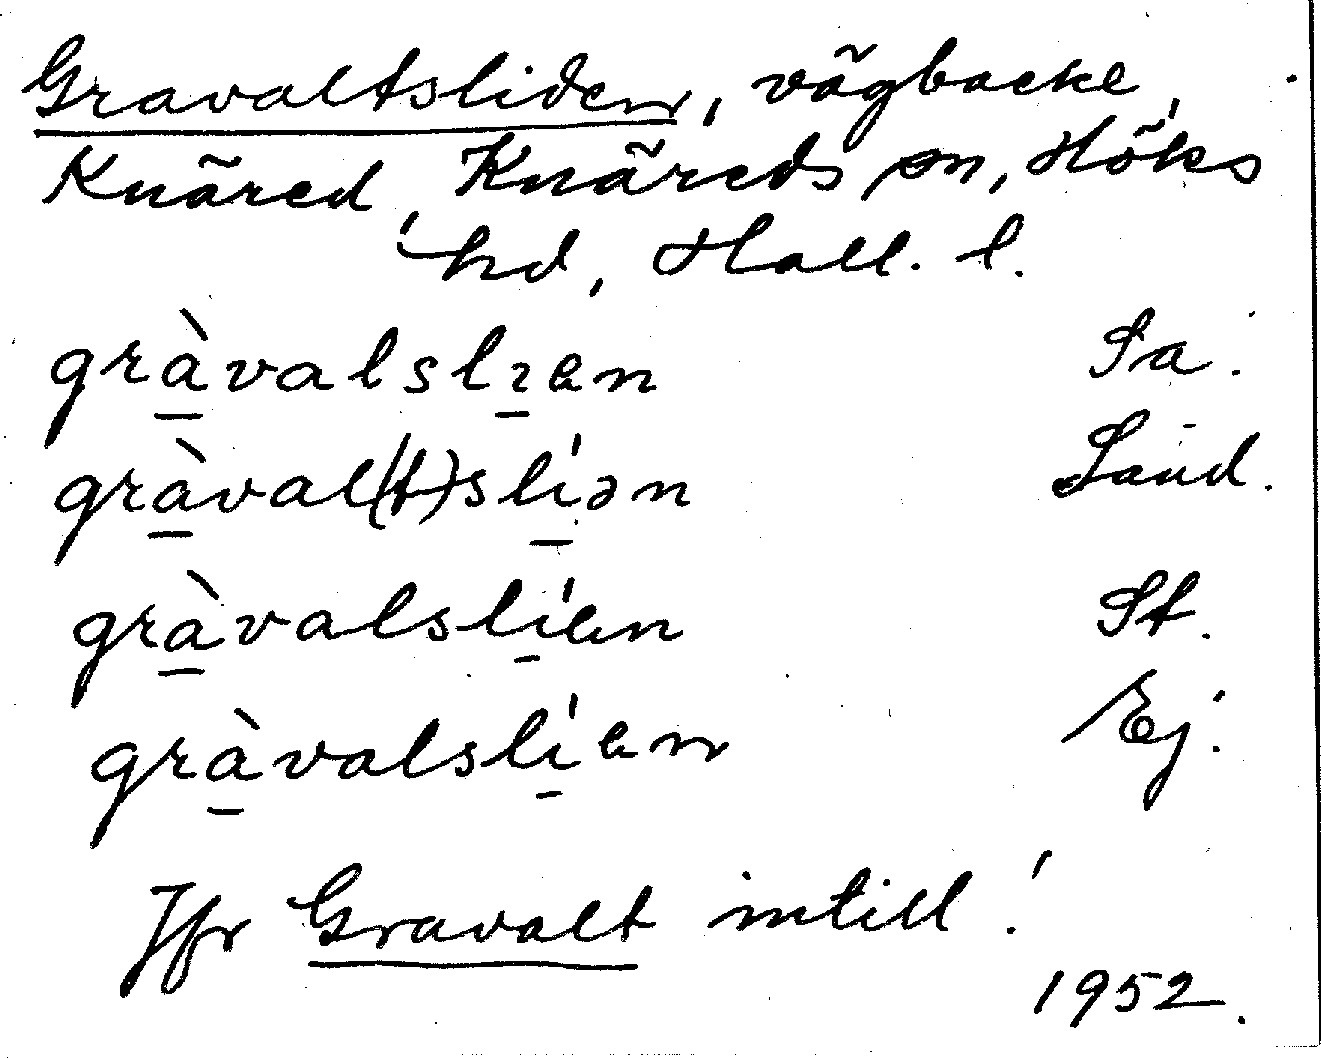 Gravaltsliden, vägbacke,
Knäred, Knäreds sn, Höks
hd, Hall. l.
gràvalslɩen Sa.
gràval(t)slíən Sand.
gràvalslíen St.
gràvalslíen Ej.
Jfr Gravalt intill!
1952.